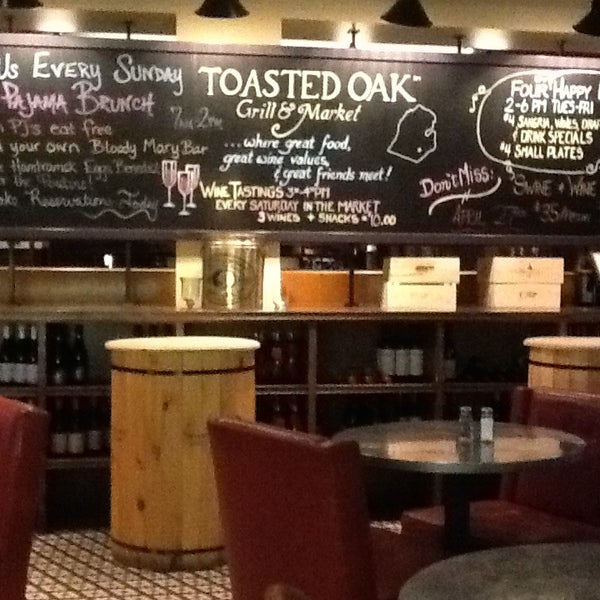 Us EVERY SUNDAY
PAJAMA BRUNCH
PJ's eat free
your own Bloody Mary Bar
Hamtramck Eggs Benedict
Reservations Today
TOASTED OAK
Grill & Market
...where great food,
great wine values,
& great friends meet!
WINE TASTINGS 3-4PM
EVERY SATURDAY IN THE MARKET
3 WINES + SNACKS = $10.00
DON'T MISS:
APRIL
FOUR HAPPY
2-6 PM TUES-FRI
$4 SANGRIA, WINES, DRAF
& DRINK SPECIALS
$4 SMALL PLATES
WINE + WINE